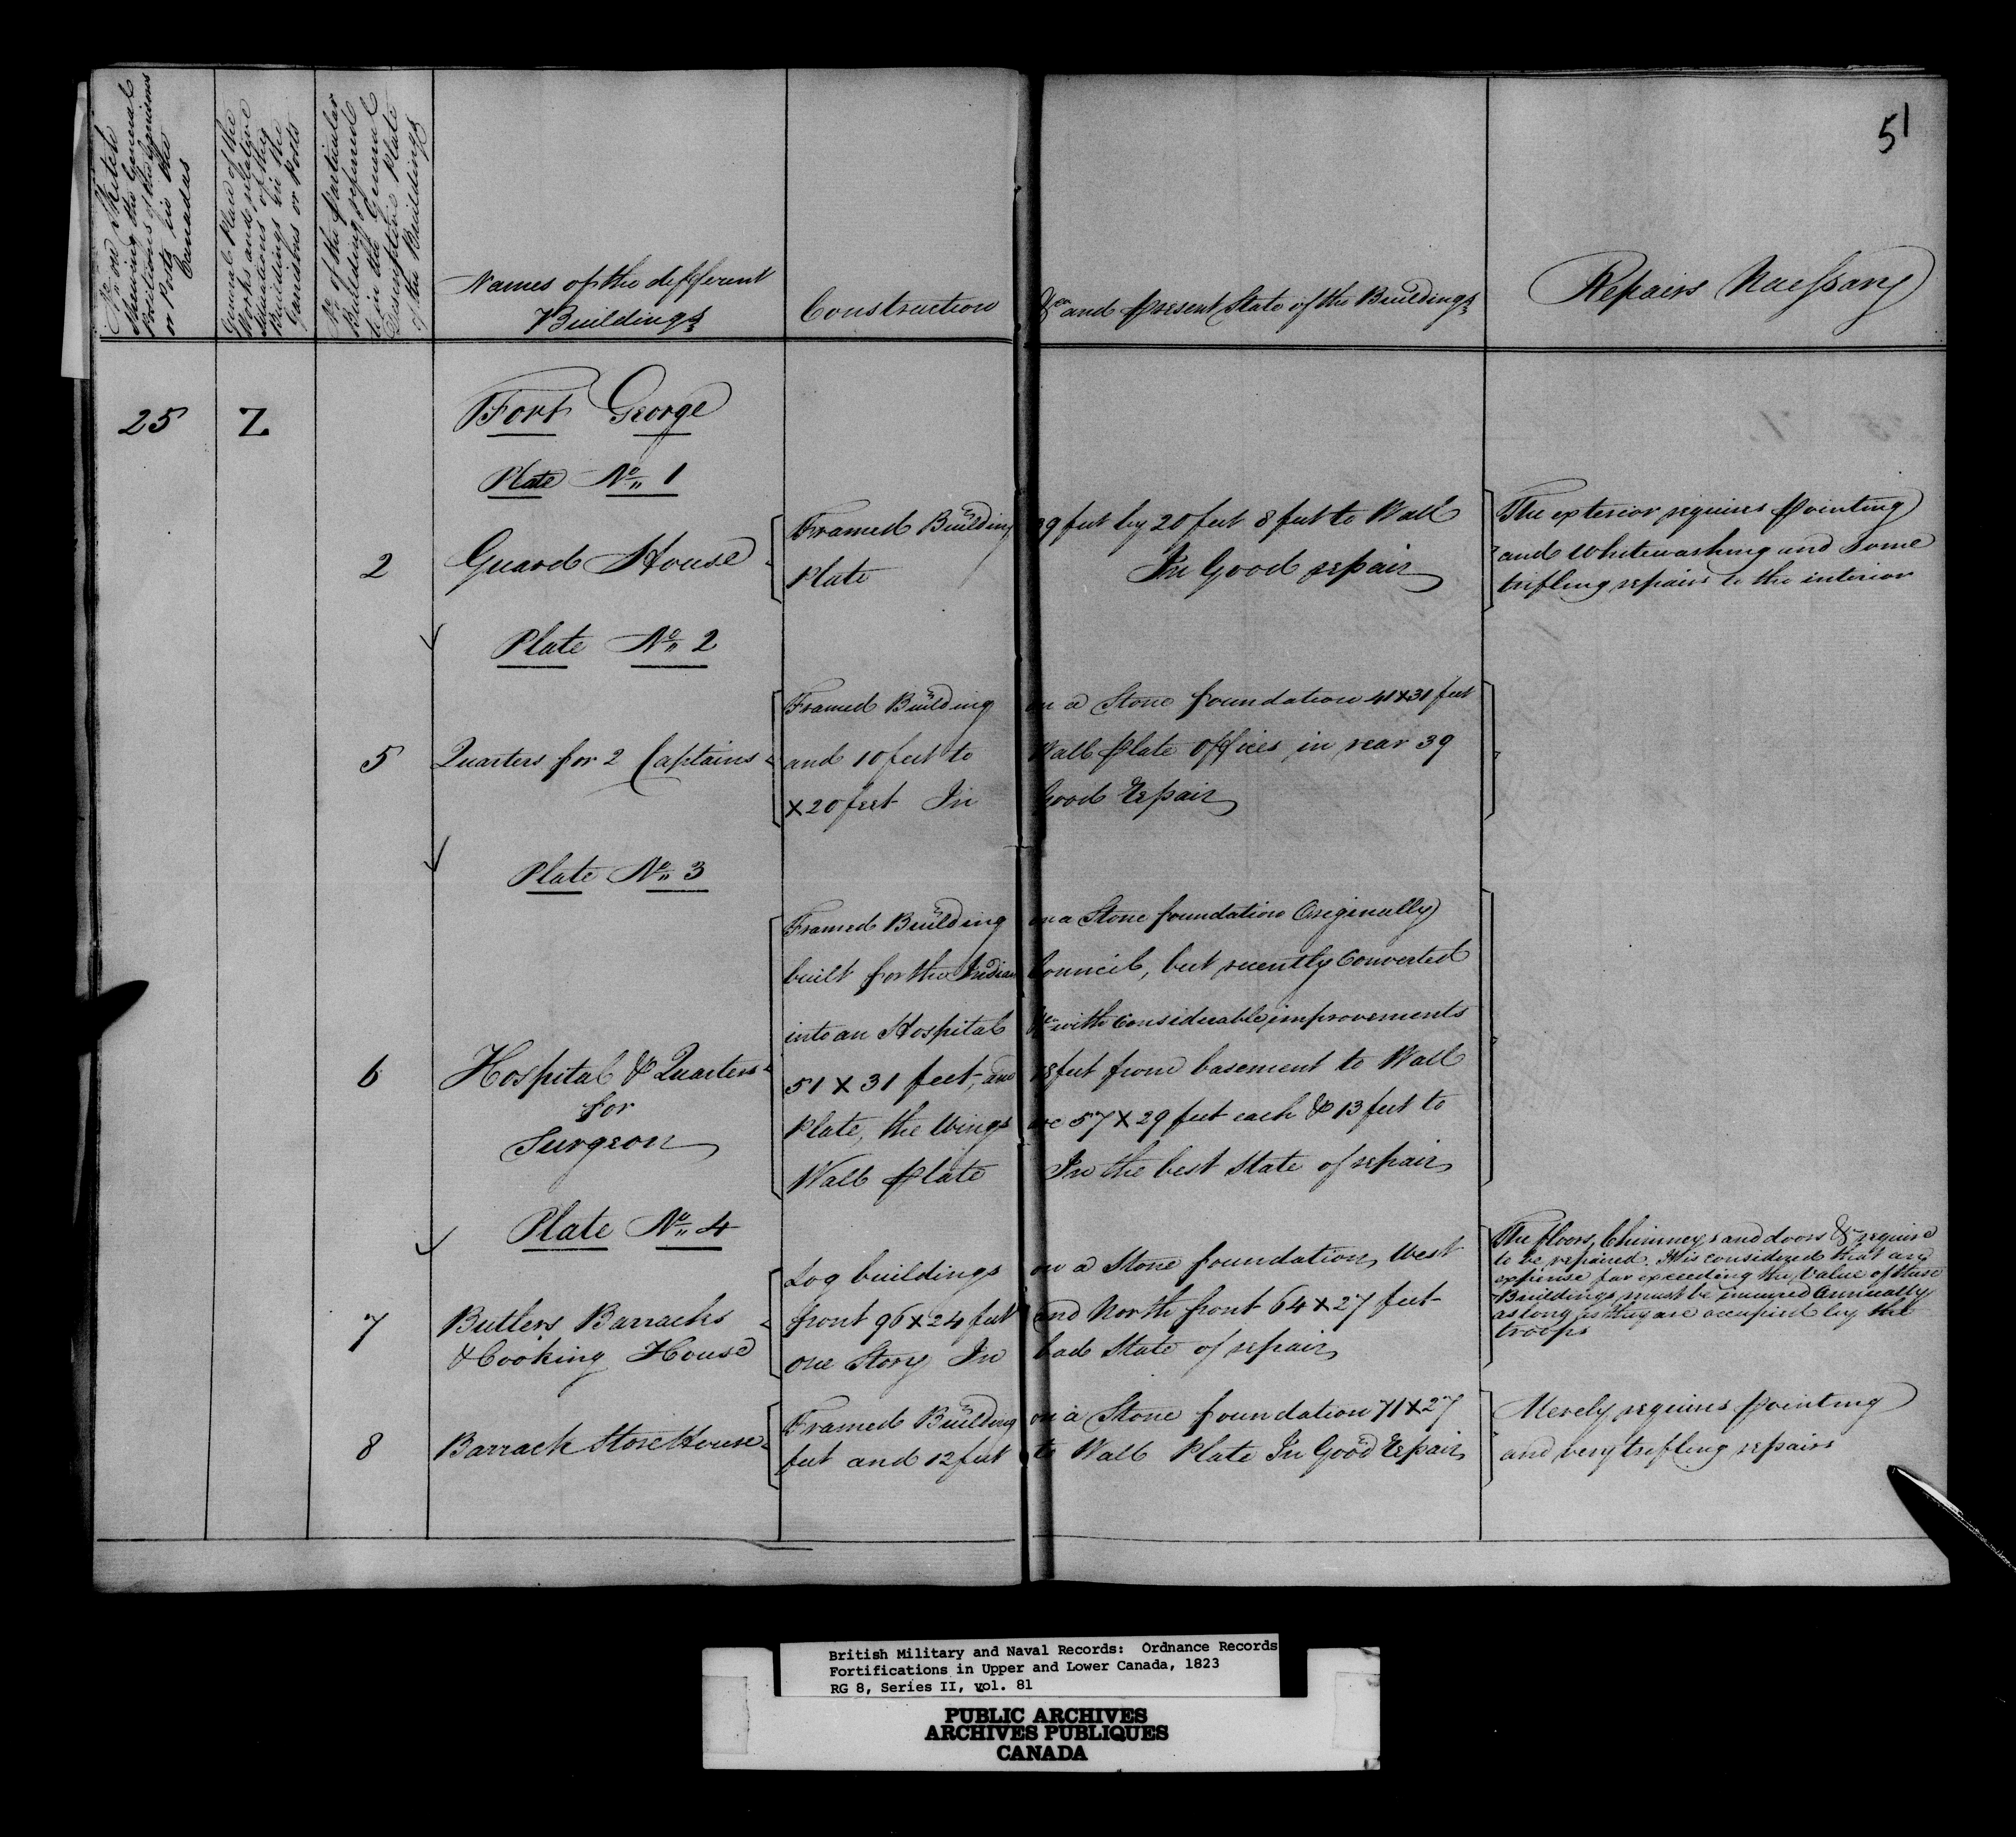 51
No. on Sketch
Shewing the General
Positions of the Garrisons
or Posts in the
Canadas
General Plan of the
Works and relative
Situations of the
Buildings in the
Garrisons or Posts
No. of the particular
Building referred
to in the General
Descriptive Plate
of the Buildings
Names of the different
Buildings
Construction &ca and present State of the Buildings
Repairs Necessary
25 Z Fort George
Plate No. 1
2 Guard House
Framed Building 29 feet by 20 feet 8 feet to Wall
Plate In Good repair
The exterior requires painting
and whitewashing and some
trifling repairs to the interior
Plate No. 2
5 Quarters for 2 Captains
Framed Building on a Stone foundation 41 x 31 feet
and 10 feet to Wall Plate Offices in rear 39
x 20 feet In Good Repair
Plate No. 3
6 Hospital & Quarters
for
Surgeon
Framed Building on a Stone foundation Originally
built for the Indian Council, but recently Converted
into an Hospital &ca with considerable improvements
51 x 31 feet, and 18 feet from basement to Wall
Plate, the Wings are 57 x 29 feet each & 13 feet to
Wall Plate In the best State of repair
Plate No. 4
7 Butlers Barracks
& Cooking House
Log buildings on a Stone foundation, West
front 96 x 24 feet and North front 64 x 27 feet
one Story In bad State of repair
The floors, Chimneys and doors &c require
to be repaired. It is considered that any
expense far exceeding the Value of these
Buildings must be incurred Annually
as long as they are occupied by the
troops
8 Barrack Store House
Framed Building on a Stone foundation 71 x 27
feet and 12 feet to Wall Plate In Good Repair
Merely requires painting
and very trifling repairs
British Military and Naval Records: Ordnance Records
Fortifications in Upper and Lower Canada, 1823
RG 8, Series II, vol. 81
PUBLIC ARCHIVES
ARCHIVES PUBLIQUES
CANADA